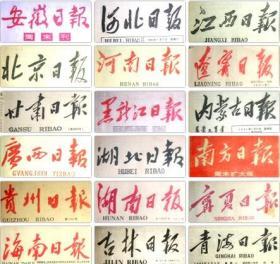 安徽日报
周末刊
河北日报
HEBEI RIBAO
江西日报
JIANGXI RIBAO
北京日报
河南日报
HENAN RIBAO
辽宁日报
LIAONING RIBAO
甘肃日报
GANSU RIBAO
黑龙江日报
内蒙古日报
广西日报
GVANGJSIH YIZBAO
湖北日报
HUBEI RIBAO
南方日报
周末扩大版
贵州日报
GUIZHOU RIBAO
湖南日报
HUNAN RIBAO
宁夏日报
NINGXIA RIBAO
海南日报
HAINAN RIBAO
吉林日报
JILIN RIBAO
青海日报
QINGHAI RIBAO